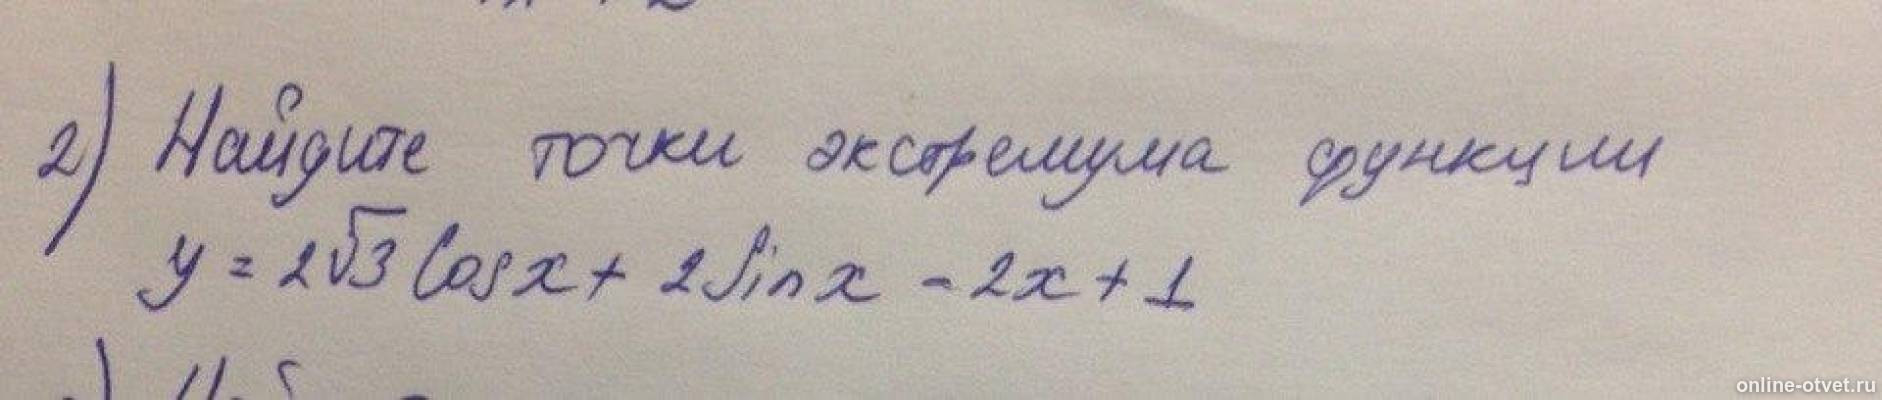 2) Найдите точки экстремума функции
y = 2√3 Cos x + 2 Sin x - 2x + 1
online-otvet.ru